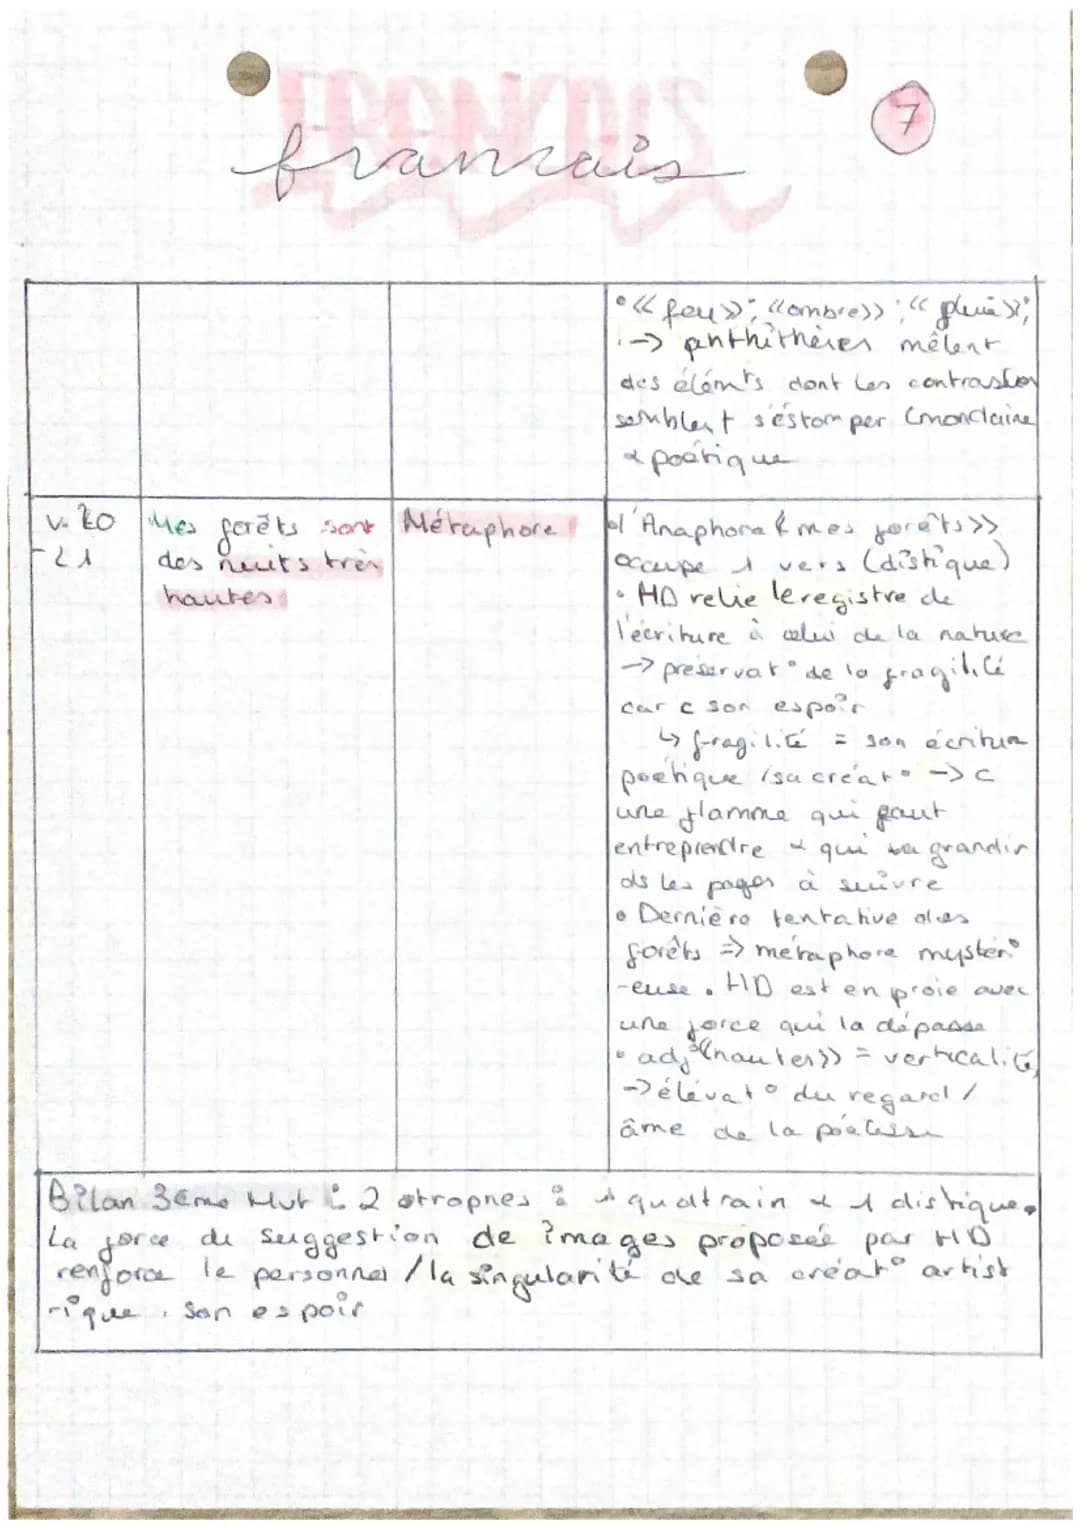 FRANCAIS
francais
7
• « feu » ; « ombre » ; « pluie » ;
→ anthithèses mêlent
des élémts dont les contrastes
semblent s'éstomper (mondaine
& poétique
v. 20
-21
Mes forêts sont
des nuits très
hautes
Métaphore
• l'Anaphore « mes forêts »
occupe 1 vers (distique)
• HD relie le registre de
l'écriture à celui de la nature
→ préservat° de la fragilité
car c son espoir
↳ fragilité = son écriture
poétique / sa créat° → c
une flamme qui faut
entreprendre & qui va grandir
ds les pages à suivre
• Dernière tentative des
forêts => métaphore mystéri
-euse. HD est en proie avec
une force qui la dépasse
• adj « hautes » = verticalité,
→ élévat° du regard /
âme de la poétesse
Bilan 3ème Mvt : 2 strophes : 1 quatrain & 1 distique.
La force de suggestion de images proposée par HD
renforce le personnel / la singularité de sa créat° artist
-ique, son espoir